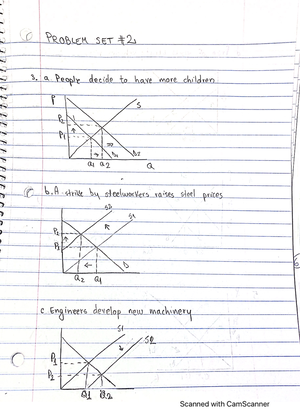 PROBLEM SET #2
3. a People decide to have more children
P
S
P2
P1
D1
D2
Q1 Q2
Q
b. A strike by steelworkers raises steel prices
S2
S1
P2
P1
D
Q2 Q1
c. Engineers develop new machinery
S1
S2
P1
P2
Q1 Q2
Scanned with CamScanner